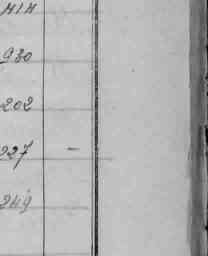 930
202
227 -
249